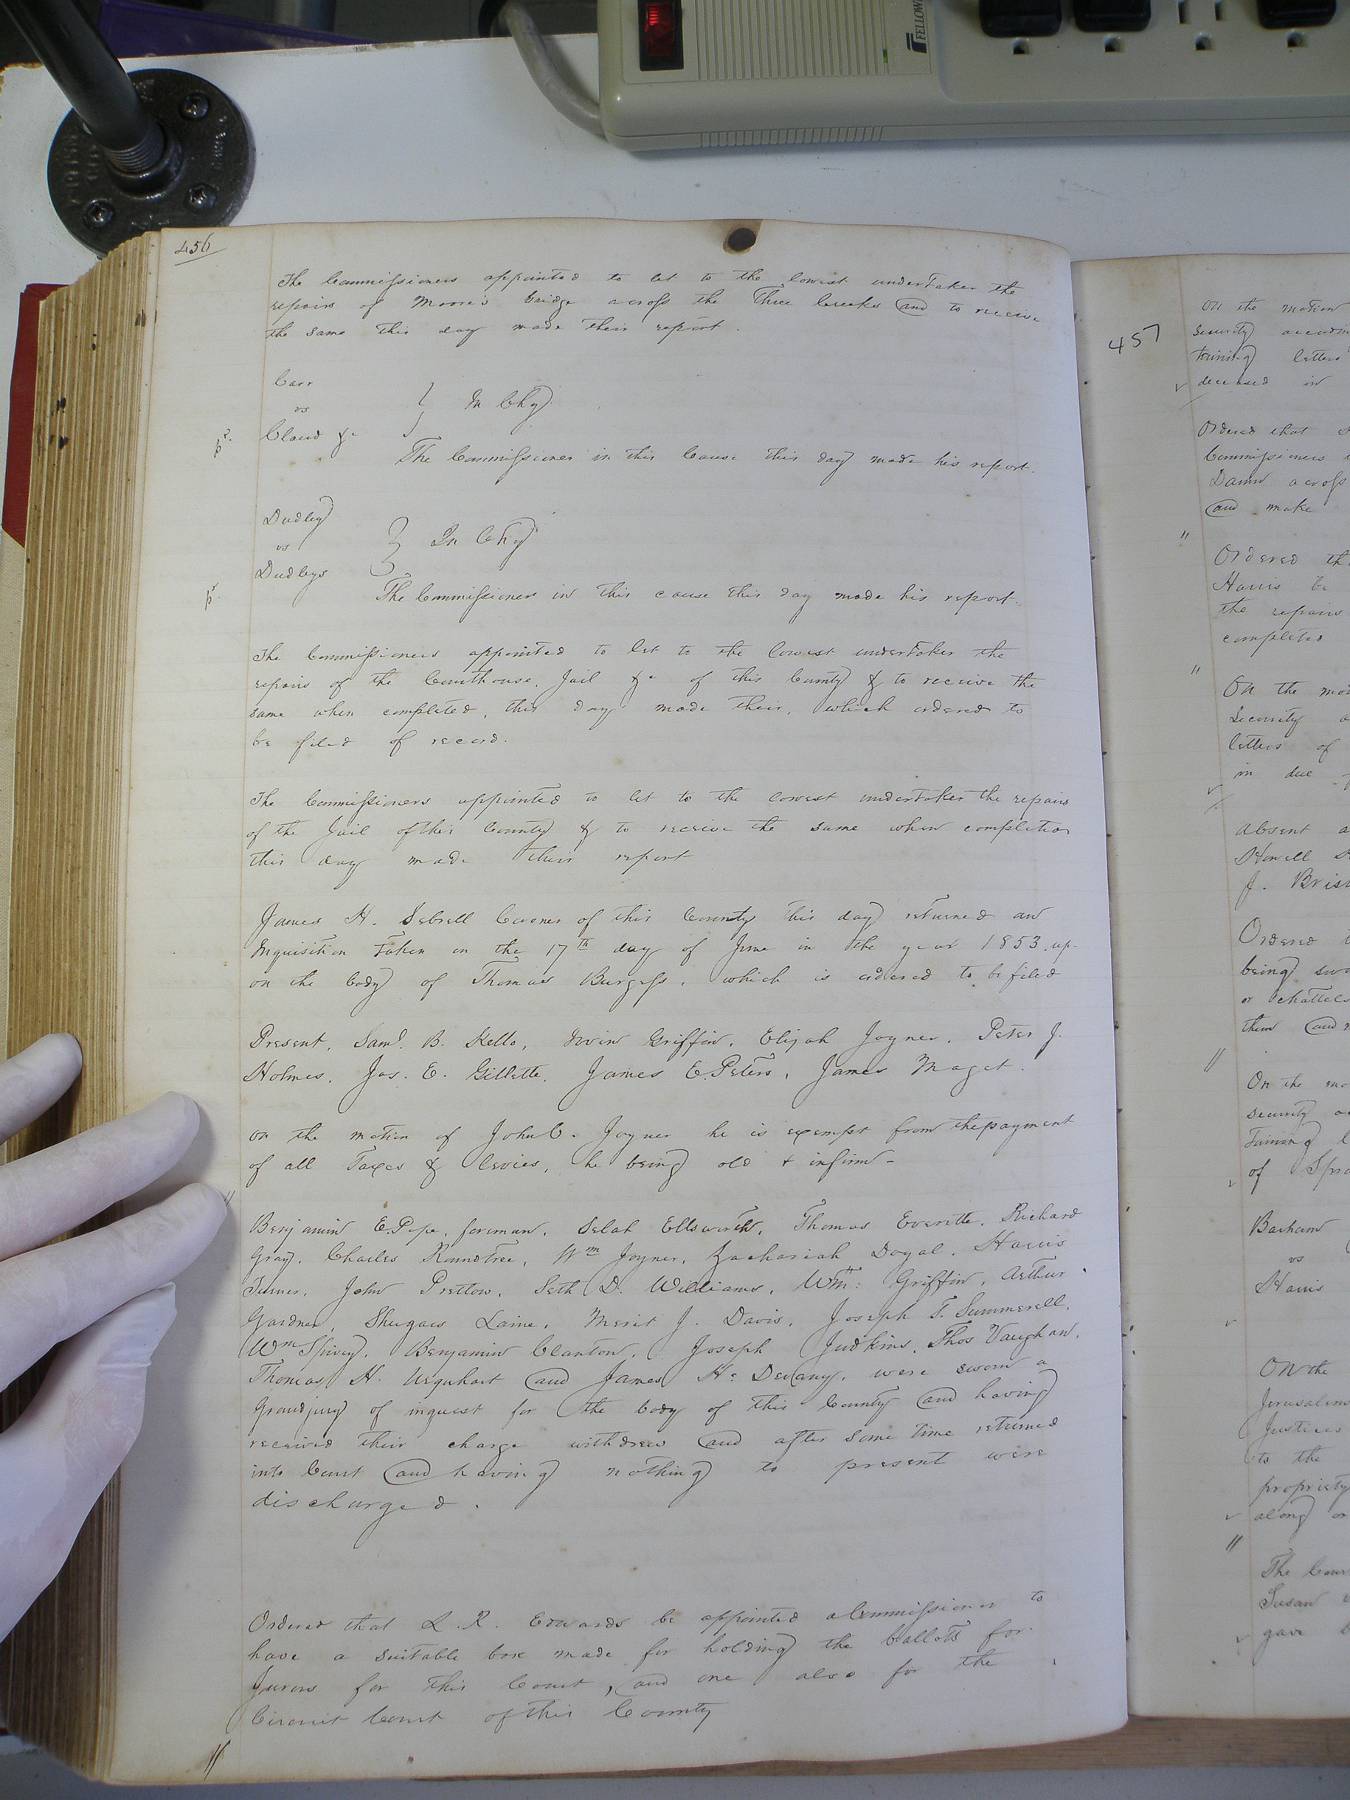 456
The Commissioners appointed to let to the lowest undertaker the
repairs of Moore's bridge across the Three Creeks and to receive
the same this day made their report.
Carr
vs
Cloud &c
In Chy
The Commissioner in this Cause this day made his report.
Dudley
vs
Dudleys
In Chy
The Commissioner in this cause this day made his report.
The Commissioners appointed to let to the lowest undertaker the
repairs of the Courthouse, Jail &c of this County & to receive the
same when completed, this day made their, which ordered to
be filed of record.
The Commissioners appointed to let to the lowest undertaker the repairs
of the Jail of this County & to receive the same when completion
this day made their report
James H. Sebrell Coroner of this County this day returned an
Inquisition Taken on the 17th day of June in the year 1853 up-
on the body of Thomas Burgess, which is ordered to be filed
Present, Saml. B. Kello, Irvin Griffin, Elijah Joyner, Peter J.
Holmes, Jas. E. Gillette, James E. Peters, James Maget.
On the motion of John C. Joyner he is exempt from the payment
of all Taxes & levies, he being old & infirm-
Benjamin E. Pope, foreman, Selah Ellsworth, Thomas Everette, Richard
Gray, Charles Roundtree, Wm Joyner, Zachariah Doyal, Harris
Turner, John Pretlow, Seth D. Williams, Wm: Griffin, Arthur
Gardner, Laine, Merit J. Davis, Joseph T. Summerell,
Wm Spivey, Benjamin Clanton, Joseph Judkins, Thos Vaughan,
Thomas H. Urquhart and James H. Devany, were sworn a
Grandjury of inquest for the body of this County and having
received their charge withdrew and after some time returned
into Court and having nothing to present were
discharged.
Ordered that L. R. Edwards be appointed a Commissioner to
have a suitable box made for holding the ballots for
Jurors for this Court, and one also for the
Circuit Court of this County
457
On the motion
security
taining letters
deceased in
Ordered that
Commissioners
Damn across
and make
Ordered th
Harris be
the repairs
completed
On the mo
Security
letters of
in due
Absent
Howell
J. Bris
Ordered
being
or chattels
them and
On the mo
security
taining
of
Barham
vs
Harris
On the
Jerusalem
Justices
to the
propriety
along
The Cou
Susan
gave
FELLOW